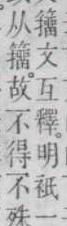 籒文互釋。明祇一
从籒。故不得不殊